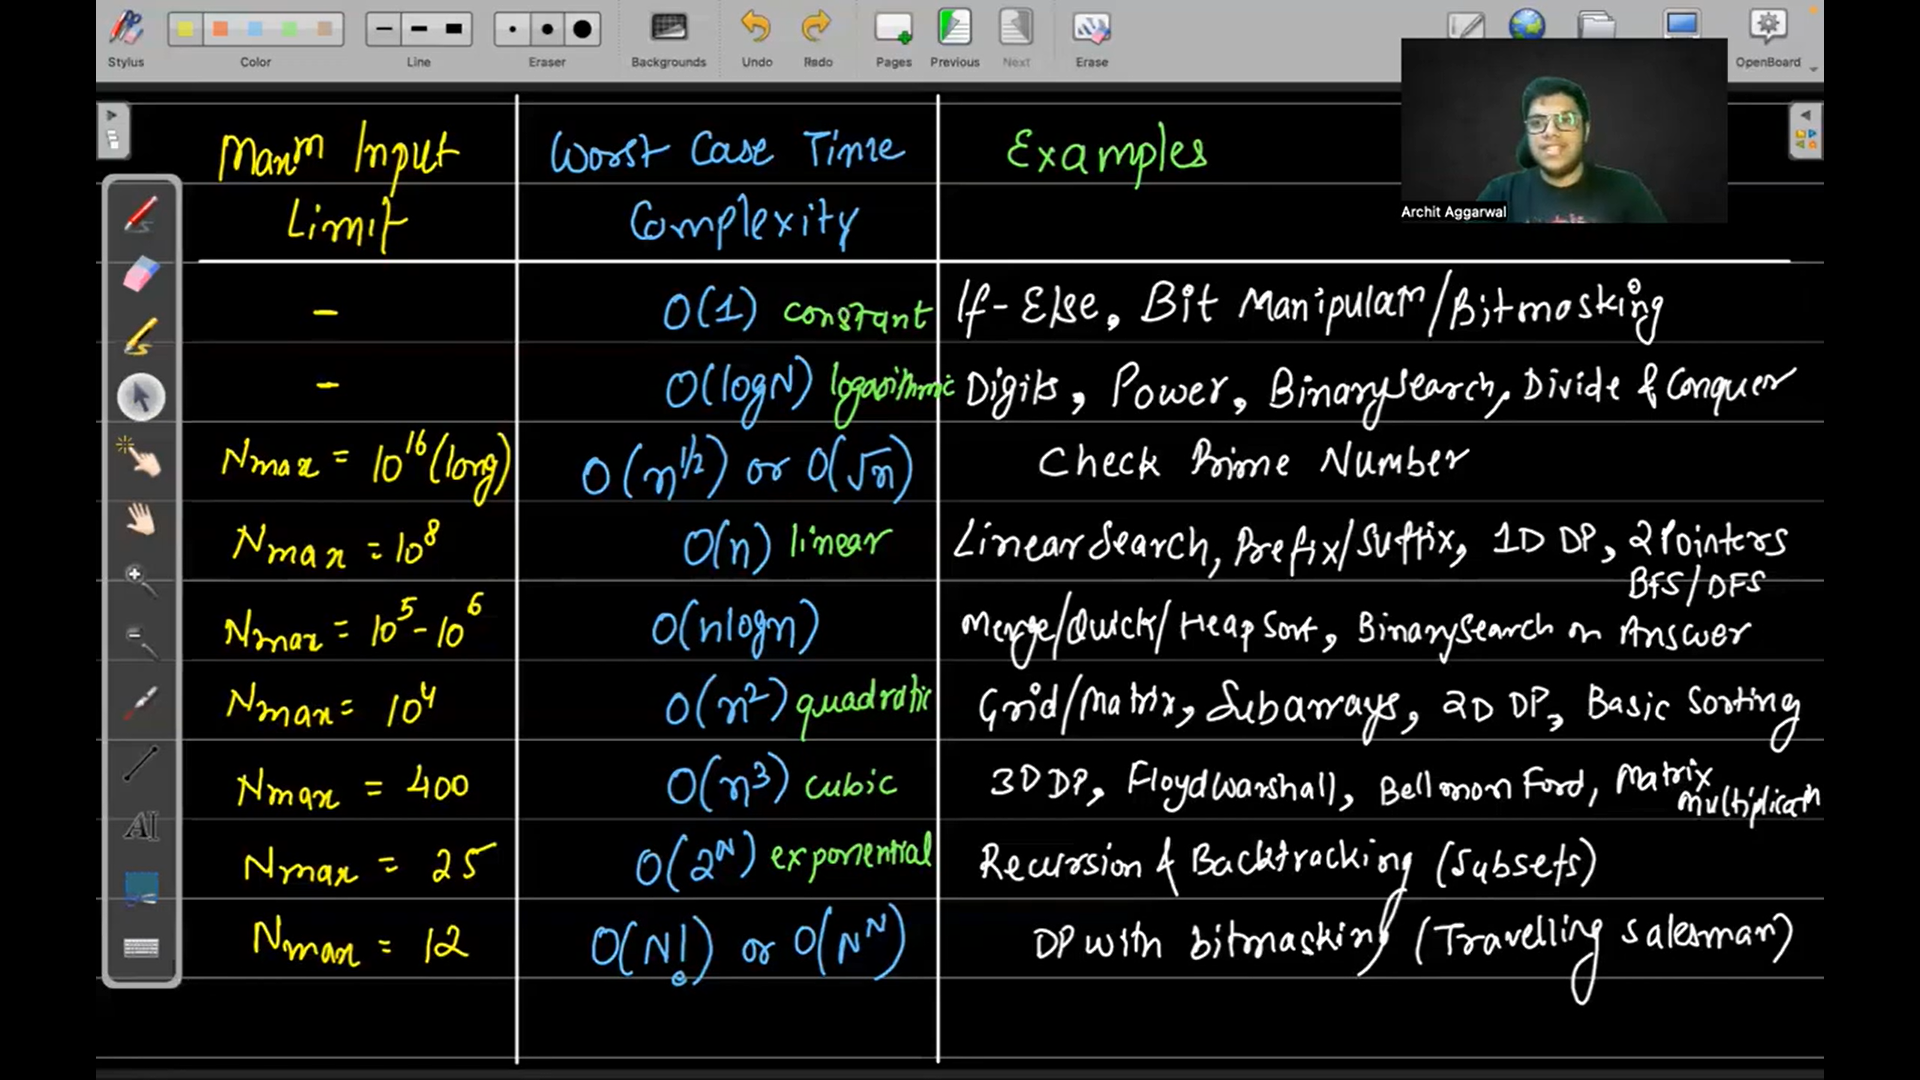 Stylus
Color
Line
Eraser
Backgrounds
Undo
Redo
Pages
Previous
Next
Erase
OpenBoard
Archit Aggarwal
Maxm Input Limit
Worst Case Time Complexity
Examples
- O(1) constant If-Else, Bit Manipulatn/Bitmasking
- O(logN) logarithmic Digits, Power, BinarySearch, Divide & Conquer
Nmax = 10^16 (long) O(n^1/2) or O(√n) Check Prime Number
Nmax = 10^8 O(n) linear Linear Search, Prefix/Suffix, 1D DP, 2 Pointers
BFS/DFS
Nmax = 10^5 - 10^6 O(nlogn) Merge/Quick/HeapSort, BinarySearch on Answer
Nmax = 10^4 O(n^2) quadratic Grid/Matrix, Subarrays, 2D DP, Basic Sorting
Nmax = 400 O(n^3) cubic 3D DP, FloydWarshall, Bellman Ford, Matrix
multiplicatn
Nmax = 25 O(2^N) exponential Recursion & Backtracking (Subsets)
Nmax = 12 O(N!) or O(N^N) DP with bitmasking (Travelling salesman)